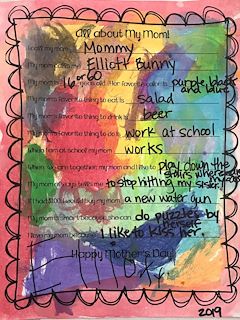 All about my Mom!
I call my mom Mommy
My mom calls me Elliott Bunny
My mom is 16 or 60 years old. Her favorite color is purple black and blue
My mom's favorite thing to eat is salad
My mom's favorite thing to drink is beer
My mom's favorite thing to do is work at school
When I am at school my mom works
When we are together, my mom and I like to play down the stairs where
My mom always tells me to stop hitting my sister!
If I had $100 I would buy my mom a new water gun
My mom is smart because she can do puzzles by herself
I love my mom because I like to kiss her.
Happy Mother's Day!
Elliott
2019